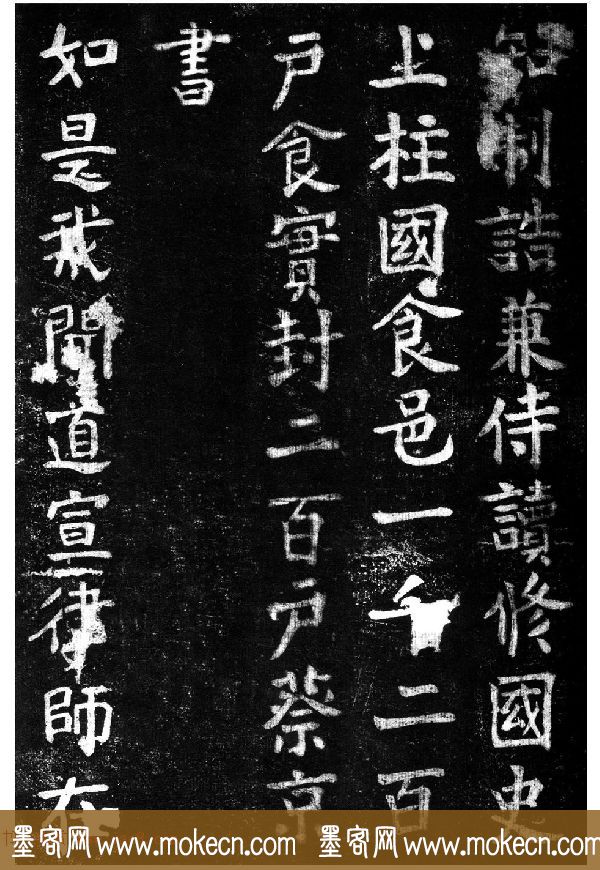 知制誥兼侍讀修國史
上柱國食邑一千二百
戶食實封二百戶蔡京
書
如是我聞道宣律師在
墨客网 www.mokecn.com 墨客网 www.mokecn.com